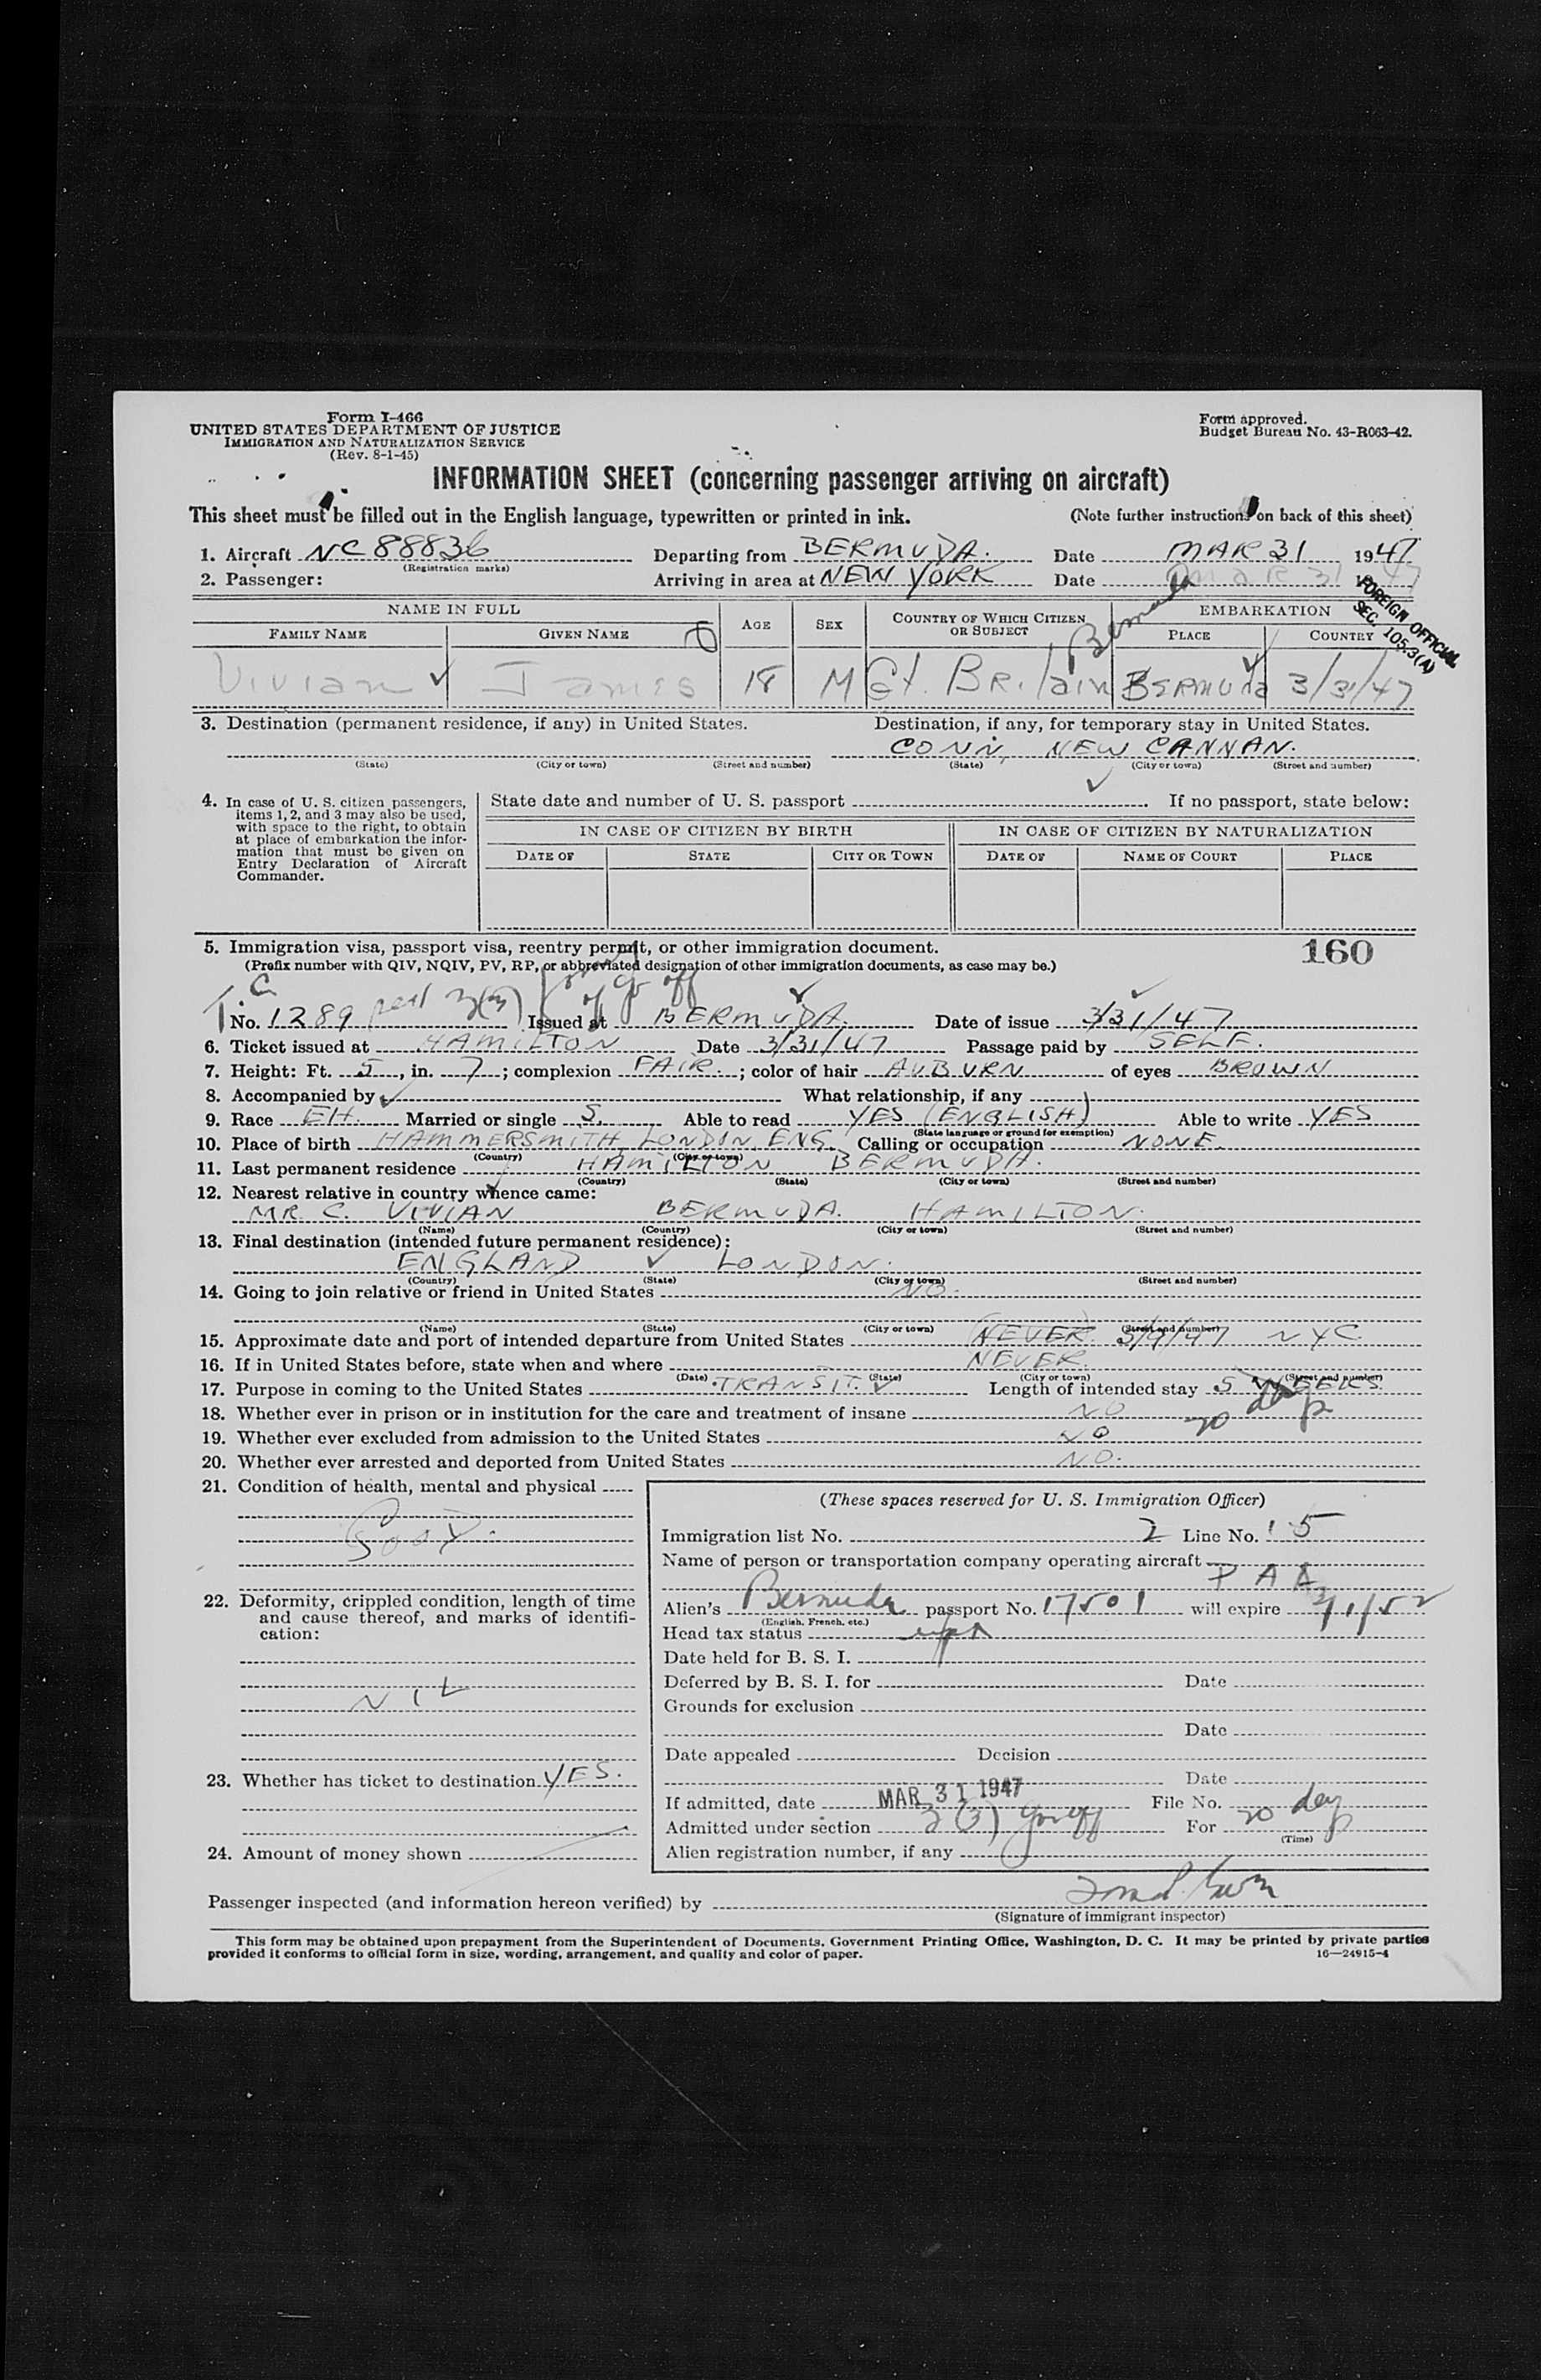 Form I-466
UNITED STATES DEPARTMENT OF JUSTICE
IMMIGRATION AND NATURALIZATION SERVICE
(Rev. 8-1-45)
Form approved.
Budget Bureau No. 43-R063-42.
INFORMATION SHEET (concerning passenger arriving on aircraft)
This sheet must be filled out in the English language, typewritten or printed in ink. (Note further instructions on back of this sheet)
1. Aircraft NC88836 Departing from BERMUDA. Date MAR 31 1947
(Registration marks)
2. Passenger: Arriving in area at NEW YORK Date MAR 31 1947
FOREIGN OFFICIAL
SEC. 105.3(A)
NAME IN FULL AGE SEX COUNTRY OF WHICH CITIZEN OR SUBJECT EMBARKATION
FAMILY NAME GIVEN NAME PLACE COUNTRY
Bermuda
Vivian James 18 M Gt. Britain BERMUda 3/31/47
3. Destination (permanent residence, if any) in United States. Destination, if any, for temporary stay in United States.
CONN, NEW CANNAN.
(State) (City or town) (Street and number) (State) (City or town) (Street and number)
4. In case of U. S. citizen passengers, items 1, 2, and 3 may also be used, with space to the right, to obtain at place of embarkation the information that must be given on Entry Declaration of Aircraft Commander.
State date and number of U. S. passport If no passport, state below:
IN CASE OF CITIZEN BY BIRTH IN CASE OF CITIZEN BY NATURALIZATION
DATE OF STATE CITY OR TOWN DATE OF NAME OF COURT PLACE
5. Immigration visa, passport visa, reentry permit, or other immigration document. 160
(Prefix number with QIV, NQIV, PV, RP, or abbreviated designation of other immigration documents, as case may be.)
T.C.
No. 1289 3(3) of gv off Issued at BERMUDA. Date of issue 3/31/47
6. Ticket issued at HAMILTON Date 3/31/47 Passage paid by SELF.
7. Height: Ft. 5, in. 7; complexion FAIR.; color of hair AUBURN of eyes BROWN
8. Accompanied by What relationship, if any
9. Race EH. Married or single S. Able to read YES (ENGLISH) Able to write YES
(State language or ground for exemption)
10. Place of birth HAMMERSMITH, LONDON, ENG. Calling or occupation NONE.
(Country) (City or town)
11. Last permanent residence HAMILTON BERMUDA.
(Country) (State) (City or town) (Street and number)
12. Nearest relative in country whence came:
MR. C. VIVIAN BERMUDA. HAMILTON.
(Name) (Country) (City or town) (Street and number)
13. Final destination (intended future permanent residence):
ENGLAND LONDON.
(Country) (State) (City or town) (Street and number)
14. Going to join relative or friend in United States NO.
(Name) (State) (City or town) (Street and number)
15. Approximate date and port of intended departure from United States NEVER. 5/4/47 NYC
16. If in United States before, state when and where NEVER.
(Date) (State) (City or town) (Street and number)
17. Purpose in coming to the United States TRANSIT. Length of intended stay 5 WEEKS.
20 days
18. Whether ever in prison or in institution for the care and treatment of insane NO
19. Whether ever excluded from admission to the United States NO
20. Whether ever arrested and deported from United States NO.
21. Condition of health, mental and physical
GOOD.
22. Deformity, crippled condition, length of time and cause thereof, and marks of identification:
NIL
23. Whether has ticket to destination YES.
24. Amount of money shown
(These spaces reserved for U. S. Immigration Officer)
Immigration list No. 2 Line No. 15
Name of person or transportation company operating aircraft
PAA
Alien's Bermuda passport No. 17501 will expire 3/1/52
(English, French, etc.)
Head tax status
Date held for B. S. I.
Deferred by B. S. I. for Date
Grounds for exclusion
Date
Date appealed Decision
Date
If admitted, date MAR 31 1947 File No.
Admitted under section 3(3) gov off For 20 days
(Time)
Alien registration number, if any
Passenger inspected (and information hereon verified) by
(Signature of immigrant inspector)
This form may be obtained upon prepayment from the Superintendent of Documents, Government Printing Office, Washington, D. C. It may be printed by private parties
provided it conforms to official form in size, wording, arrangement, and quality and color of paper. 16—24915-4